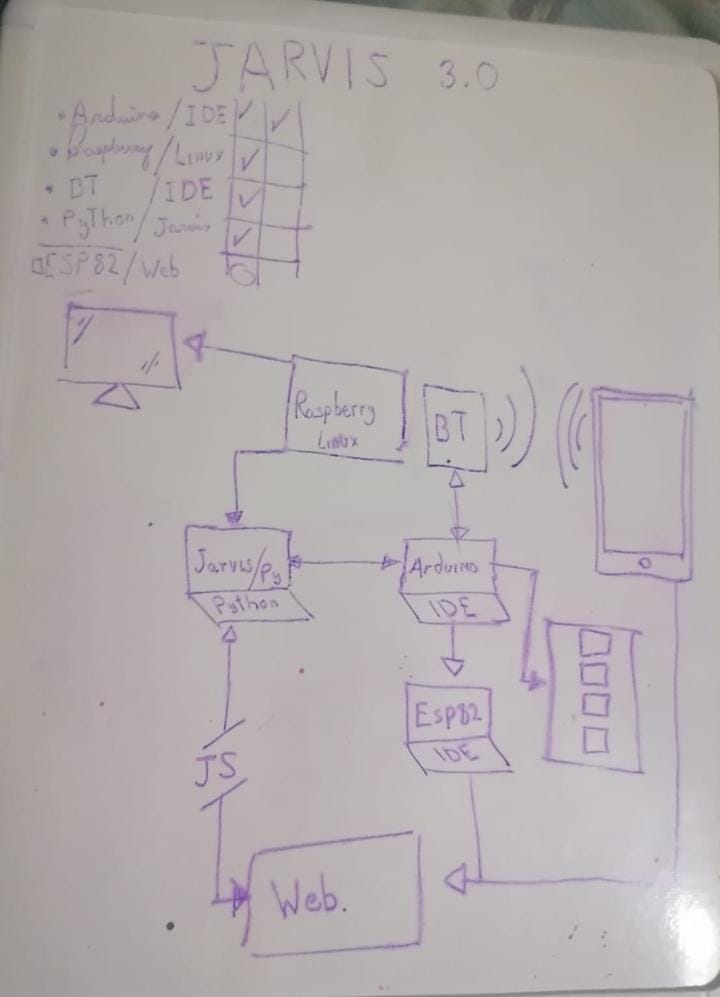 JARVIS 3.0
• Arduino/IDE ✓ ✓
• Raspberry/Linux ✓
• BT /IDE ✓
• PyThon/Jarvis ✓
ESP82/Web
Raspberry
Linux
BT
Jarvis/Py
Python
Arduino
IDE
Esp82
IDE
JS
Web.